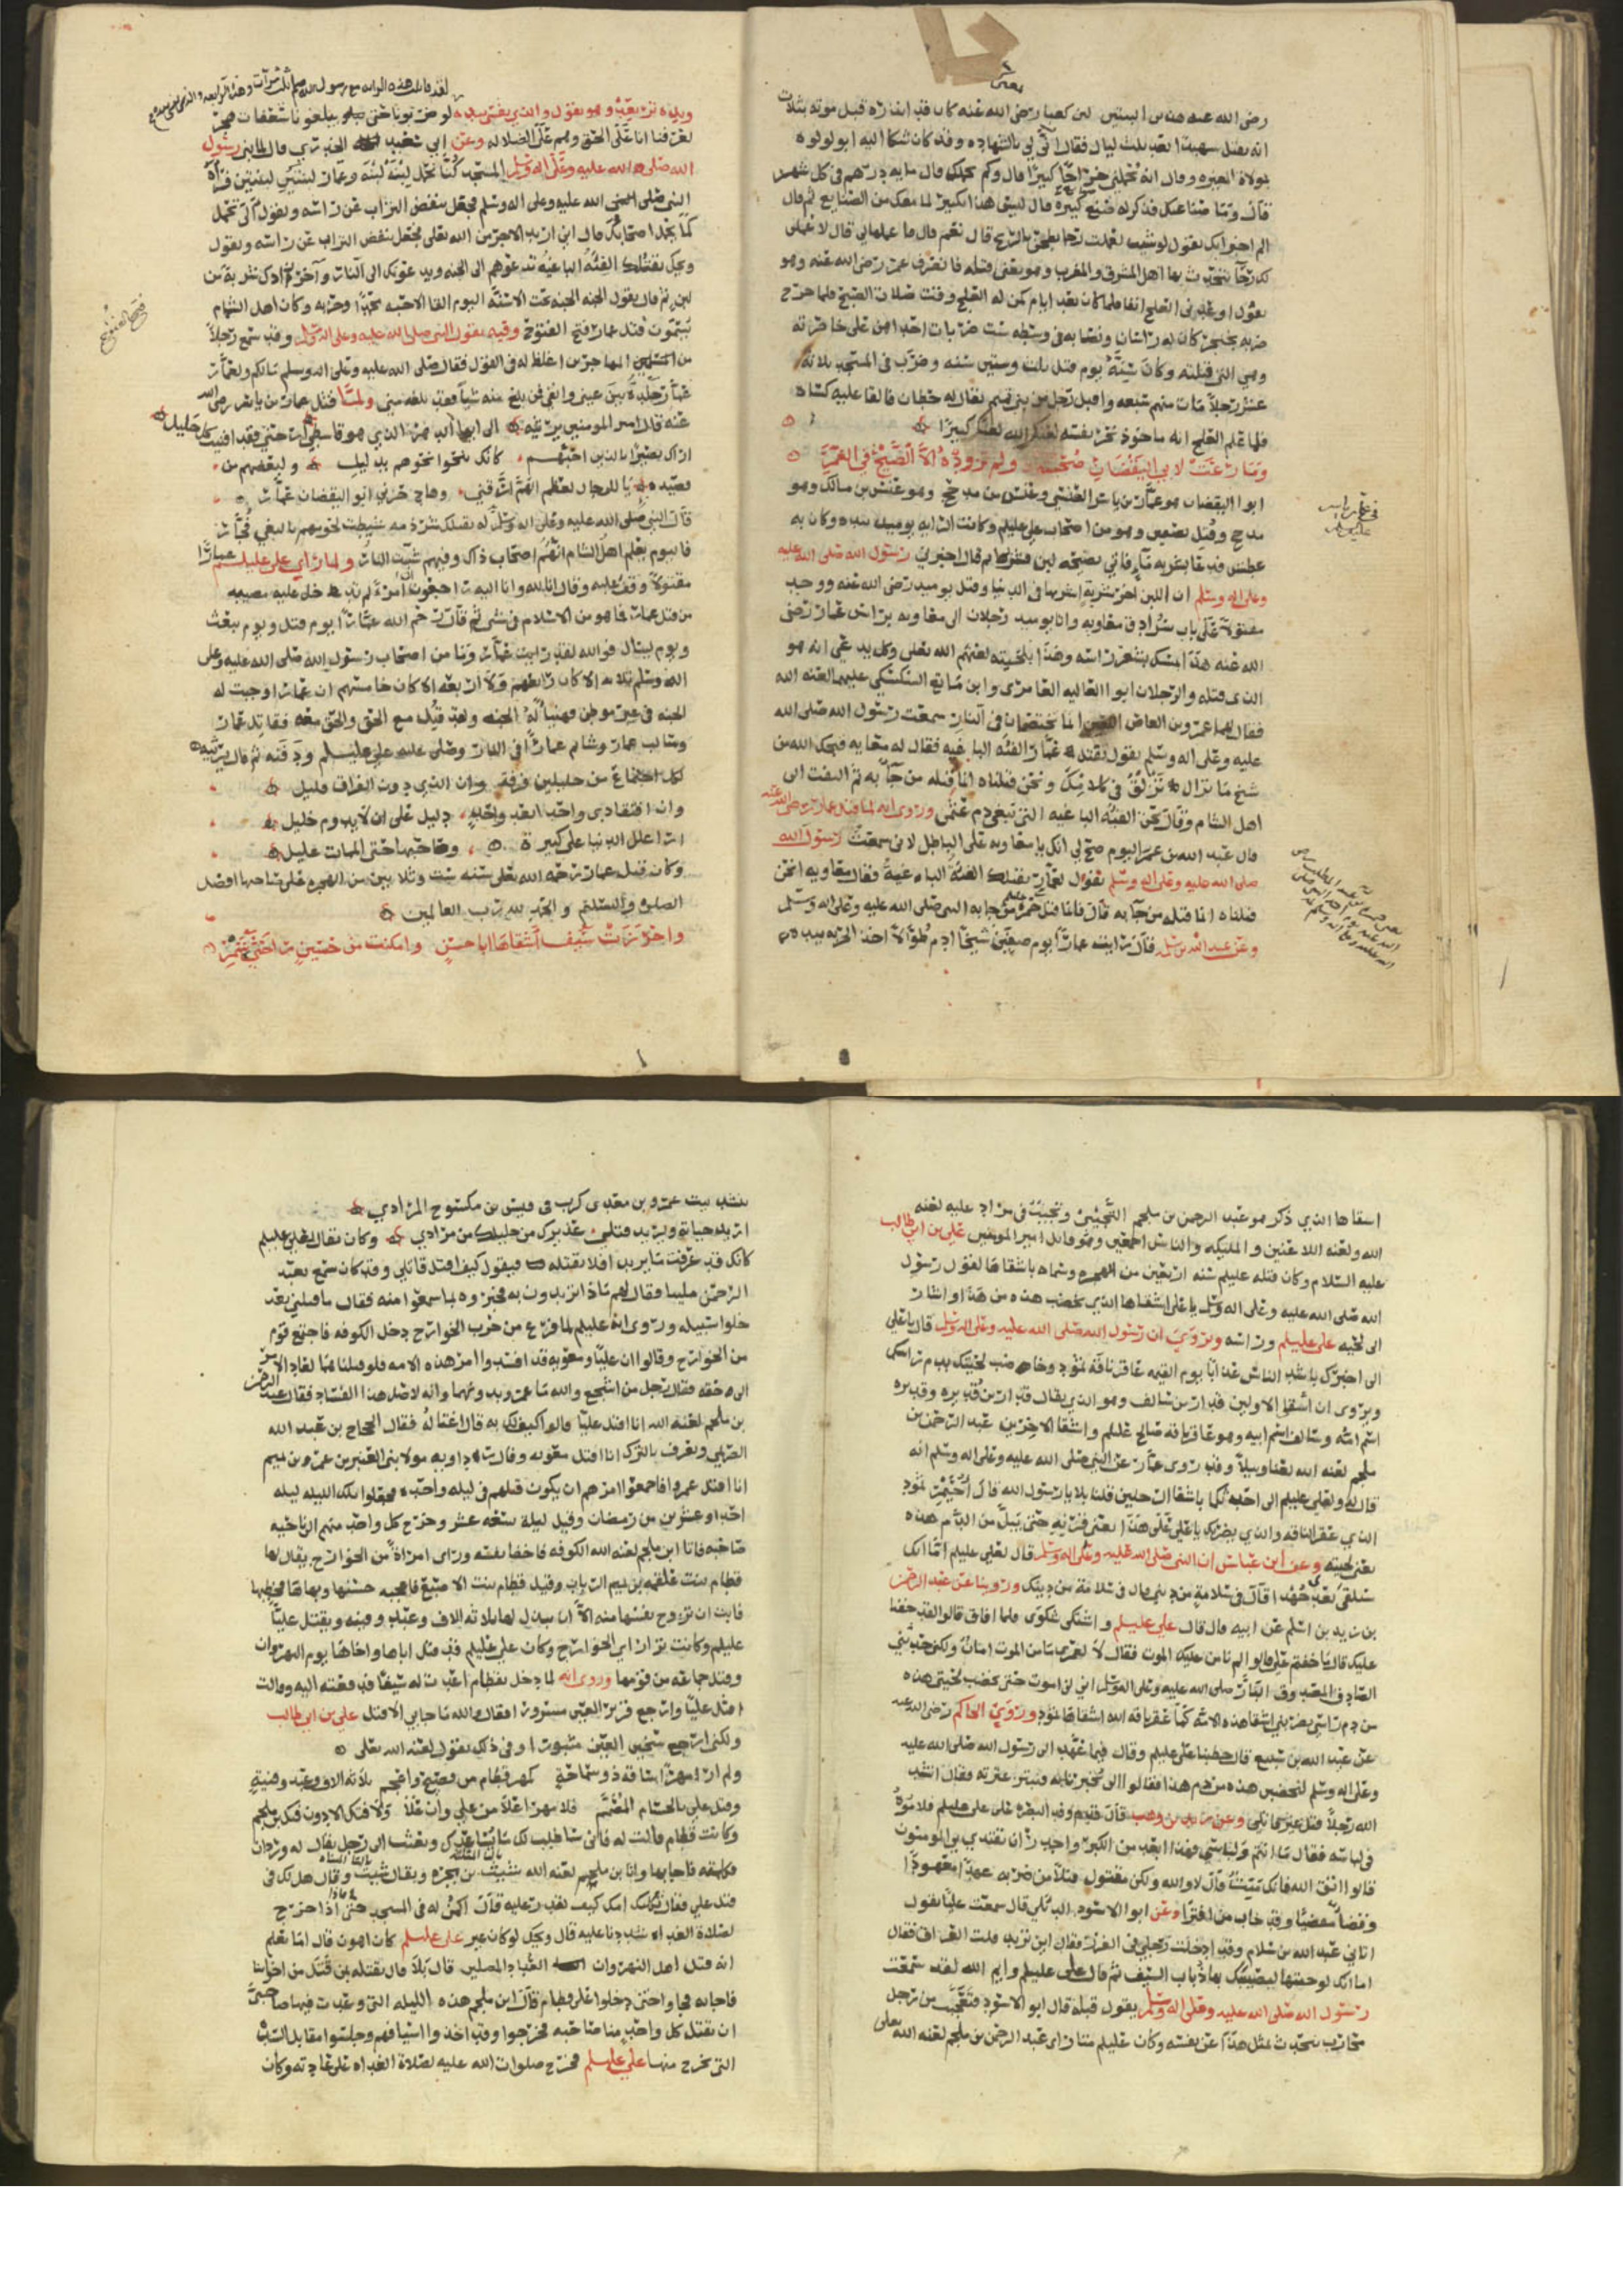 رضى الله عنه هذين البيتين لان كعبا رضى الله عنه كان قد انذره قبل موته بثلاث
انه يقتل شهيدا بعد ثلث ليال فقال انّى لى بالشهاده وقد كان شكا اليه ابو لولوه
مولاه المغيره وقال انه يحملنى خراجًا كبيرًا قال وكم يحملك قال مايه درهم فى كل شهر
قال وما صناعتك فذكر له صنع كثيره قال ليس هذا بكبير لما معك من الصنايع ثم قال
الم اخبر انك تقول لو شيت لعملت رحا تطحن بالريح قال نعم قال فاعملها لى قال لاعملن
لك رحًا يتحدث بها اهل المشرق والمغرب وهو يعنى قتله فانصرف عمر رضى الله عنه وهو
يقول اوعدنى العلج انفا فلما كان بعد ايام كمن له العلج وقت صلاة الصبح فلما خرج
ضربه بخنجر كان له راسان ونصابه فى وسطه ست ضربات احداهن على خاصرته
وهى التى قتلته وكان سنّه يوم قتل ثلاث وستين سنه وضرب فى المسجد ثلاثة
عشر رجلا مات منهم سبعه واقبل رجل من بنى تميم يقال له حطان فالقا عليه كساه
فلما علم العلج انه ماخوذ نحر نفسه لعنه الله لعنًا كبيرًا
وما رعت لابى اليقضان صحبته ولم تزوده الا الضيح فى الغمر
ابو اليقضان هو عمار بن ياسر العنسى وعنس من مذحج وهو عنس بن مالك وهو
مذحج وقتل بصفين وهو من اصحاب على عليلم وكانت الرايه يوميذ بيده وكان به
عطش فدعا بشربه ماء فاتى بصحفه لبن فشربها ثم قال اخبرنى رسول الله صلى الله عليه
وعلى اله وسلم ان اللبن اخر شربة اشربها فى الدنيا وقتل يوميذ رضى الله عنه ووجد
مقتولا على باب سرادق معاويه واتا يوميذ رجلان الى معاويه براس عمار رضى
الله عنه هذا يمسك بشعر راسه وهذا بلحيته لعنهم الله تعالى وكل يدعى انه هو
الذى قتله والرجلان ابو الغاليه الفامرى وابن ماتع السكسكى عليهما لعنة الله
فقال لهما عمرو بن العاص انما تختصمان فى النار سمعت رسول الله صلى الله
عليه وعلى اله وسلم يقول تقتلك عمار الفئه الباغيه فقال له معاويه قبحك الله من
شيخ ما تزال تزلق فى كلامك ونحن قتلناه انما قتله من جا به ثم التفت الى
اهل الشام وقال نحن الفئه الباغيه التى تبغى دم عثمن وروى انه لما قتل عمار رضى الله عنه
قال عبد الله بن عمر اليوم صح لى انك يا معاويه على الباطل لانى سمعت رسول الله
صلى الله عليه وعلى اله وسلم يقول لعمار تقتلك الفئة الباغية فقال معاويه انحن
قتلناه انما قتله من جا به قال فانما قتل حمزة من جا به النبى صلى الله عليه وعلى اله وسلم
وعن عبد الله بن سلمه قال رايت عمارًا يوم صفين شيخًا ادم طوالا اخذ الحربه بيده
لقد قاتلت هذه الرايه مع رسول الله صلم ثلث مرات وهذه الرابعه والذى نفسى بيده
ويده ترتعد وهو يقول والذى نفسى بيده لو ضربونا حتى يبلغوا بنا شعفات هجر
لعرفنا انا على الحق وهم على الضلاله وعن ابى سعيد الخدرى قال لما بنى رسول
الله صلى الله عليه وعلى اله وسلم المسجد كنا نحمل لبنة لبنة وعمار لبنتين لبنتين فراه
النبى صلى الله عليه وعلى اله وسلم فجعل ينفض التراب عن راسه ويقول الا تحمل
كما يحمل اصحابك قال انى اريد الاجر من الله تعالى فجعل ينفض التراب عن راسه ويقول
ويحك تقتلك الفئة الباغيه تدعوهم الى الجنه ويدعونك الى النار وآخر زادك شربة من
لبن ثم قال يقول الجنه الجنه تحت الاسنه اليوم القا الاحبه محمدًا وحزبه وكان اهل الشام
يسمون قتل عمار فتح الفتوح وفيه يقول النبى صلى الله عليه وعلى اله وسلم وقد سمع رجلا
من المهاجرين اغلظ له فى القول فقال صلى الله عليه وعلى اله وسلم مالكم ولعمار
عمار جلدة بين عينى وانفى فمن بلغ منه شيا فقد بلغه منى ولما قتل عمار بن ياسر رضى الله
عنه قال امير المومنين يرثيه الا ايها الموت الذى هو قاصدى ارحنى فقد افنيت كل خليل
اراك بصيرًا بالذين احبهم كانك تنحوا نحوهم بدليل ولبعضهم من
قصيده يا للرجال لعظم الهم ارقنى وهاج حزنى ابو اليقضان عمار
قال النبى صلى الله عليه وعلى اله وسلم له تقتلك شرذمه سيطت لحومهم بالبغى فجار
فاليوم يعلم اهل الشام انهم اصحاب ذاك وفيهم شبت النار ولما راى على عليلم عمارا
مقتولا وقف عليه وقال انا لله وانا اليه راجعون ان امرءًا لم تدخل عليه مصيبه
من قتل عمار فما هو من الاسلام فى شى ثم قال رحم الله عمارًا يوم قتل ويوم يبعث
ويوم يسال فوالله لقد رايت عمار وما من اصحاب رسول الله صلى الله عليه وعلى
اله وسلم ثلاثه الا كان رابعهم ولا اربعه الا كان خامسهم ان عمارا وجبت له
الجنه فى غير موطن فهنيا له الجنه ولقد قتل مع الحق والحق معه فقاتل عمار
وسالب عمار وشاتم عمارًا فى النار وصلى عليه على عليلم ودفنه ثم قال يرثيه
لكل اجتماع من خليلين فرقة وان الذى دون الفراق قليل
وان افتقادى واحدا بعد واحد دليل على ان لا يدوم خليل
ارا علل الدنيا على كبيرة وصاحبها حتى الممات عليل
وكان قتل عمار رحمه الله تعالى سنه ست وثلاثين من الهجره على صاحبها افضل
الصلوة والسلام والحمد لله رب العالمين
واحرزت سيف اشقاها ابا حسن وامكنت من حسين راحتى شمر
اشقاها الذى ذكر هو عبد الرحمن بن ملجم التجيبى وتجيب فى مراد عليه لعنه
الله ولعنه اللاعنين والمليكه والناس اجمعين وهو قاتل امير المومنين على بن ابى طالب
عليه السلام وكان قتله عليلم سنه اربعين من الهجره وسماه باشقاها لقول رسول
الله صلى الله عليه وعلى اله وسلم يا على اشقاها الذى يخضب هذه من هذا واشار
الى لحيه على عليلم وراسه وروى ان رسول الله صلى الله عليه وعلى اله وسلم قال يا على
الى اخبرك باشد الناس عذابًا يوم القيمه عاقر ناقة ثمود وخاضب لحيتك بدم راسك
ويروى ان اشقا الاولين قدار بن سالف وهو الذى يقال قدار بن قديره وقديره
اسم امه وسالف اسم ابيه وهو عاقر ناقة صالح عليلم واشقا الاخرين عبد الرحمن بن
ملجم لعنه الله لعنا وبيلا وقد روى عمار عن النبى صلى الله عليه وعلى اله وسلم انه
قال لى ولعلى عليلم الى احدثكما باشقا الرجلين قلنا بلا يا رسول الله قال احيمر ثمود
الذى عقر الناقه والذى يضربك يا على على هذا يعنى قرنه حتى تبل من الدم هذه
يعنى لحيته وعن ابن عباس ان النبى صلى الله عليه وعلى اله وسلم قال لعلى عليلم اما انك
ستلقى بعدى جهدا قال فى سلامة من دينى قال فى سلامة من دينك وروينا عن عبد الرحمن
بن زيد بن اسلم عن ابيه قال قال على عليلم واشتكى شكوى فلما افاق قالوا لقد خفنا
عليك قال ما خفتم على قالوا الم نامن عليك الموت فقال لا لعمرى ما من الموت امان ولكن حدثنى
الصادق المصدوق البار صلى الله عليه وعلى اله وسلم انى لن اموت حتى تخضب لحيتى هذه
من دم راسى يضربنى اشقا هذه الامه كما عقر ناقه الله اشقاها ثمود وروى الحاكم رضى الله عنه
عن عبد الله بن سبيع قال خطبنا على عليلم وقال فيما عهد الى رسول الله صلى الله عليه
وعلى اله وسلم لتخضبن هذه من دم هذا فقالوا الا تخبرنا به فنبير عترته فقال انشد
الله رجلا قتل غير قاتلى وعن زيد بن وهب قال قدم وفد البصره على على عليلم فلاموه
فى لباسه فقال ما انتم ولباسى فهذا ابعد من الكبر واجدر ان يقتدى بى المومنون
قالوا اتق الله فانك ميت قال لا والله ولكن مقتول قتلا من ضربه عهدًا معهودا
وقضاء مقضيا وقد خاب من افترا وعن ابو الاسود الديلى قال سمعت عليا يقول
اتانى عبد الله بن سلام وقد ادخلت رجلى فى الغرز فقال اين تريد قلت العراق فقال
اما انك لو جئتها ليصيبك بها ذباب السيف ثم قال على عليلم وايم الله لقد سمعت
رسول الله صلى الله عليه وعلى اله وسلم يقول قبله قال ابو الاسود فتعجبت من رجل
محارب يتحدث بمثل هذا عن نفسه وكان عليلم متا راى عبد الرحمن بن ملجم لعنه الله تعالى
ينشد بيت عمرو بن معدى كرب فى قيس بن مكشوح المرادى
اريد حياته ويريد قتلى عذيرك من خليلك من مرادى وكان يقال لعلى عليلم
كانك قد عرفت ما يريد افلا تقتله فيقول كيف اقتل قاتلى وقد كان سمع بعبد
الرحمن مليبا فقال لهم ماذا تريدون به فخبروه بما سمعوا منه فقال ما قتلنى بعد
خلوا سبيله وروى انه عليلم لما فرغ من حرب الخوارج دخل الكوفه فاجتمع قوم
من الخوارج وقالوا ان عليًا ومعويه قد افسدوا امر هذه الامه فلو قتلناهما لعاد الامر
الى حقه فقال رجل من اشجع والله ما عمرو بدونهما وانه لاصل هذا الفساد فقال عبد الرحمن
بن ملجم لعنه الله انا اقتل عليًا قالوا كيف لك به قال اغتاله فقال الحجاج بن عبد الله
الصريمى ويعرف بالبرك انا اقتل معويه وقال دادويه مولا بنى العنبر بن عمرو بن تميم
انا اقتل عمرو فاجمعوا امرهم ان يكون قتلهم فى ليله واحده فجعلوا تلك الليله ليله
احدا وعشرين من رمضان وقيل ليلة سبعه عشر وخرج كل واحد منهم الى ناحيه
صاحبه فاتا ابن ملجم لعنه الله الكوفه فاخفا نفسه وراى امراة من الخوارج يقال لها
قطام بنت علقمه بن تيم الرباب وقيل قطام بنت الاصبغ فاعجبه حسنها وبهاها فخطبها
فابت ان تزوج نفسها منه الا ان يبذل لها ثلاثه الاف وعبد وقينه ويقتل عليًا
عليلم وكانت ترا راى الخوارج وكان على عليلم قد قتل اباها واخاها يوم النهروان
وقتل جماعه من قومها وروى انه لما دخل بقطام اعدت له سيفا قد سقته اليه وقالت
اقتل عليًا وارجع قرير العين مسرورا فقال والله ما جابى الا قتل على بن ابى طالب
ولكنى ارجع سخين العين مثبورا وفى ذلك يقول لعنه الله تعالى
ولم ار مهرًا ساقه ذو سماحة كمهر قطام من فصيح واعجم ثلاثه الاف وعبد وقنية
وقتل على بالحسام المصمم فلا مهر اغلا من على وان غلا ولا فتك الا دون فتك بن ملجم
وكانت قطام قالت له فانى ساطلب لك من يساعدك وبعثت الى رجل يقال له وردان
فكلمته فاجابها واتا بن ملجم لعنه الله شبيب بن بجره ويقال شبيث وقال هل لك فى
قتل على فقال ثكلتك امك كيف نقدر عليه قال اكمن له فى المسجد حتى اذا خرج
لصلاة الغداه شددنا عليه قال ويحك لو كان غير على عليلم كان اهون قال اما تعلم
انه قتل اهل النهروان العباد المصلين قال بلا قال نقتله بمن قتل من اخواننا
فاجابه فجاوا حتى دخلوا على قطام قال ابن ملجم هذه الليله التى وعدت فيها صاحبى
ان يقتل كل واحد منا صاحبه فخرجوا وقد اخذوا اسيافهم وجلسوا مقابل السدّة
التى يخرج منها على عليلم فخرج صلوات الله عليه لصلاة الغداه على عادته وكان